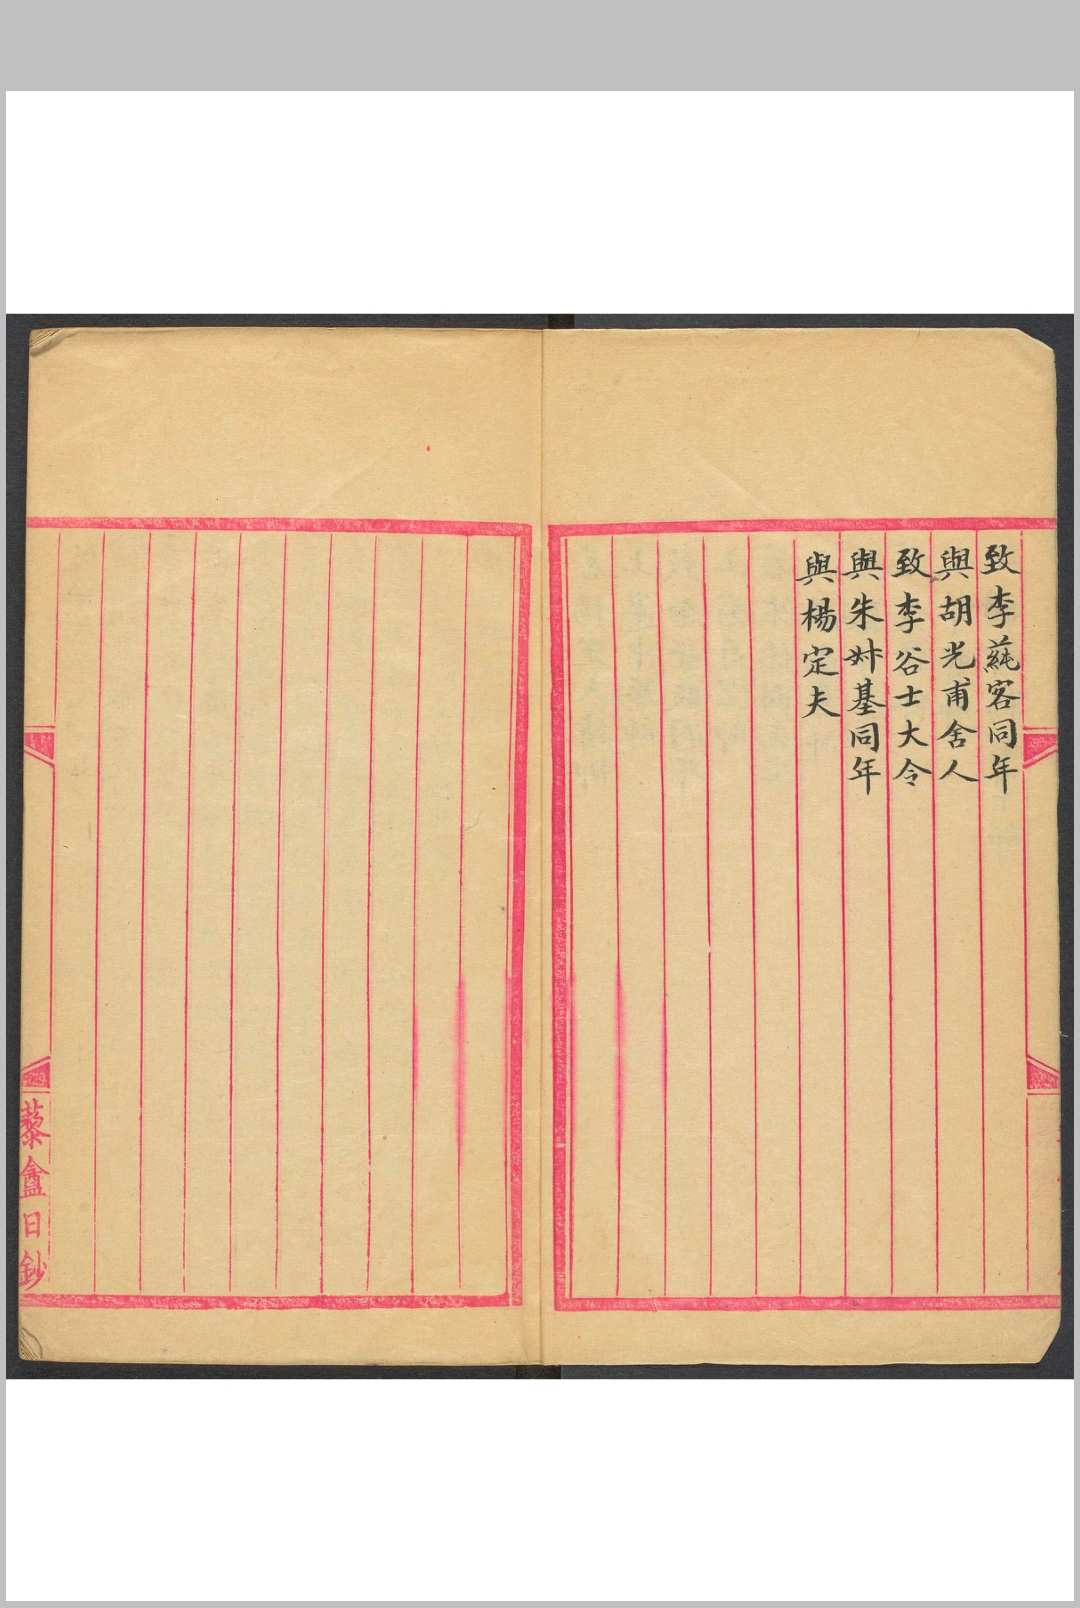 致李蒓客同年
與胡光甫舍人
致李谷士大令
與朱姊基同年
與楊定夫
藜盦日鈔